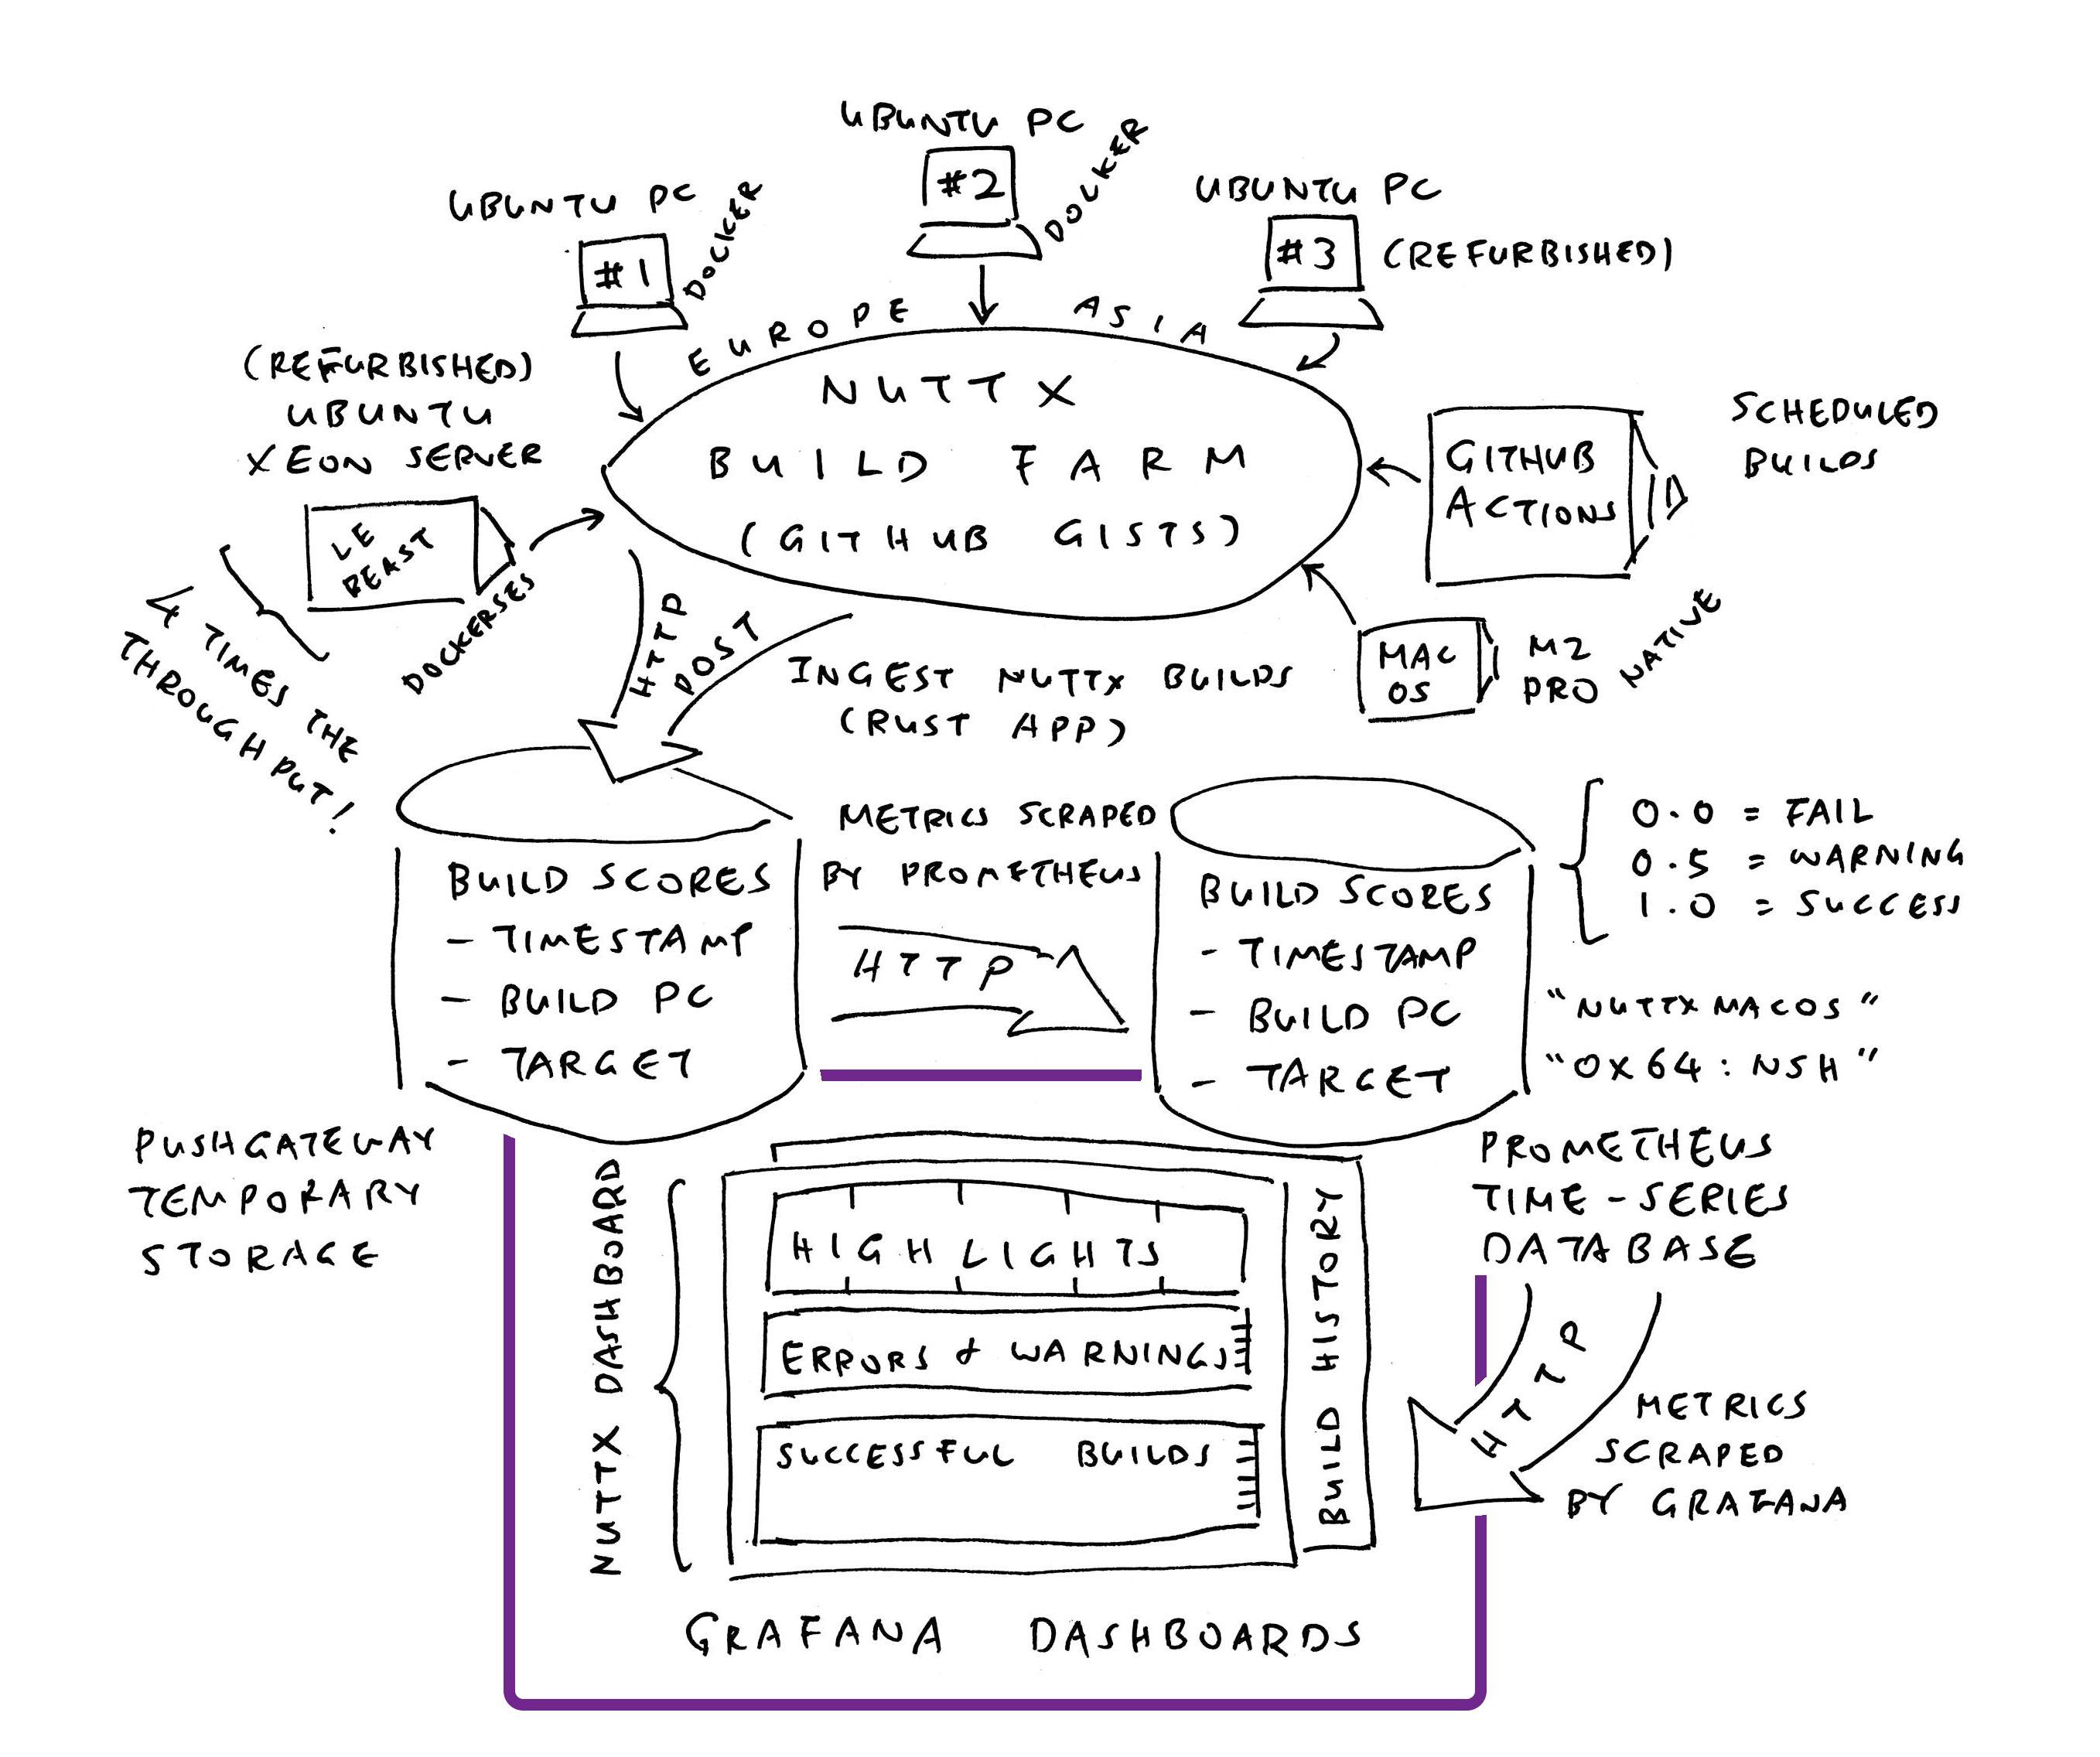 UBUNTU PC
#2
DOCKER
UBUNTU PC
#1
DOCKER
UBUNTU PC
#3
(REFURBISHED)
EUROPE
ASIA
(REFURBISHED)
UBUNTU
XEON SERVER
LE
BEAST
DOCKERSES
4 TIMES THE
THROUGHPUT!
NUTTX
BUILD FARM
(GITHUB GISTS)
GITHUB
ACTIONS
SCHEDULED
BUILDS
MAC
OS
M2
PRO
NATIVE
HTTP
POST
INGEST NUTTX BUILDS
(RUST APP)
BUILD SCORES
- TIMESTAMP
- BUILD PC
- TARGET
PUSHGATEWAY
TEMPORARY
STORAGE
METRICS SCRAPED
BY PROMETHEUS
HTTP
BUILD SCORES
- TIMESTAMP
- BUILD PC
- TARGET
0.0 = FAIL
0.5 = WARNING
1.0 = SUCCESS
"NUTTXMACOS"
"OX64:NSH"
PROMETHEUS
TIME-SERIES
DATABASE
HTTP
METRICS
SCRAPED
BY GRAFANA
NUTTX DASHBOARD
HIGHLIGHTS
ERRORS & WARNINGS
SUCCESSFUL BUILDS
BUILD HISTORY
GRAFANA DASHBOARDS